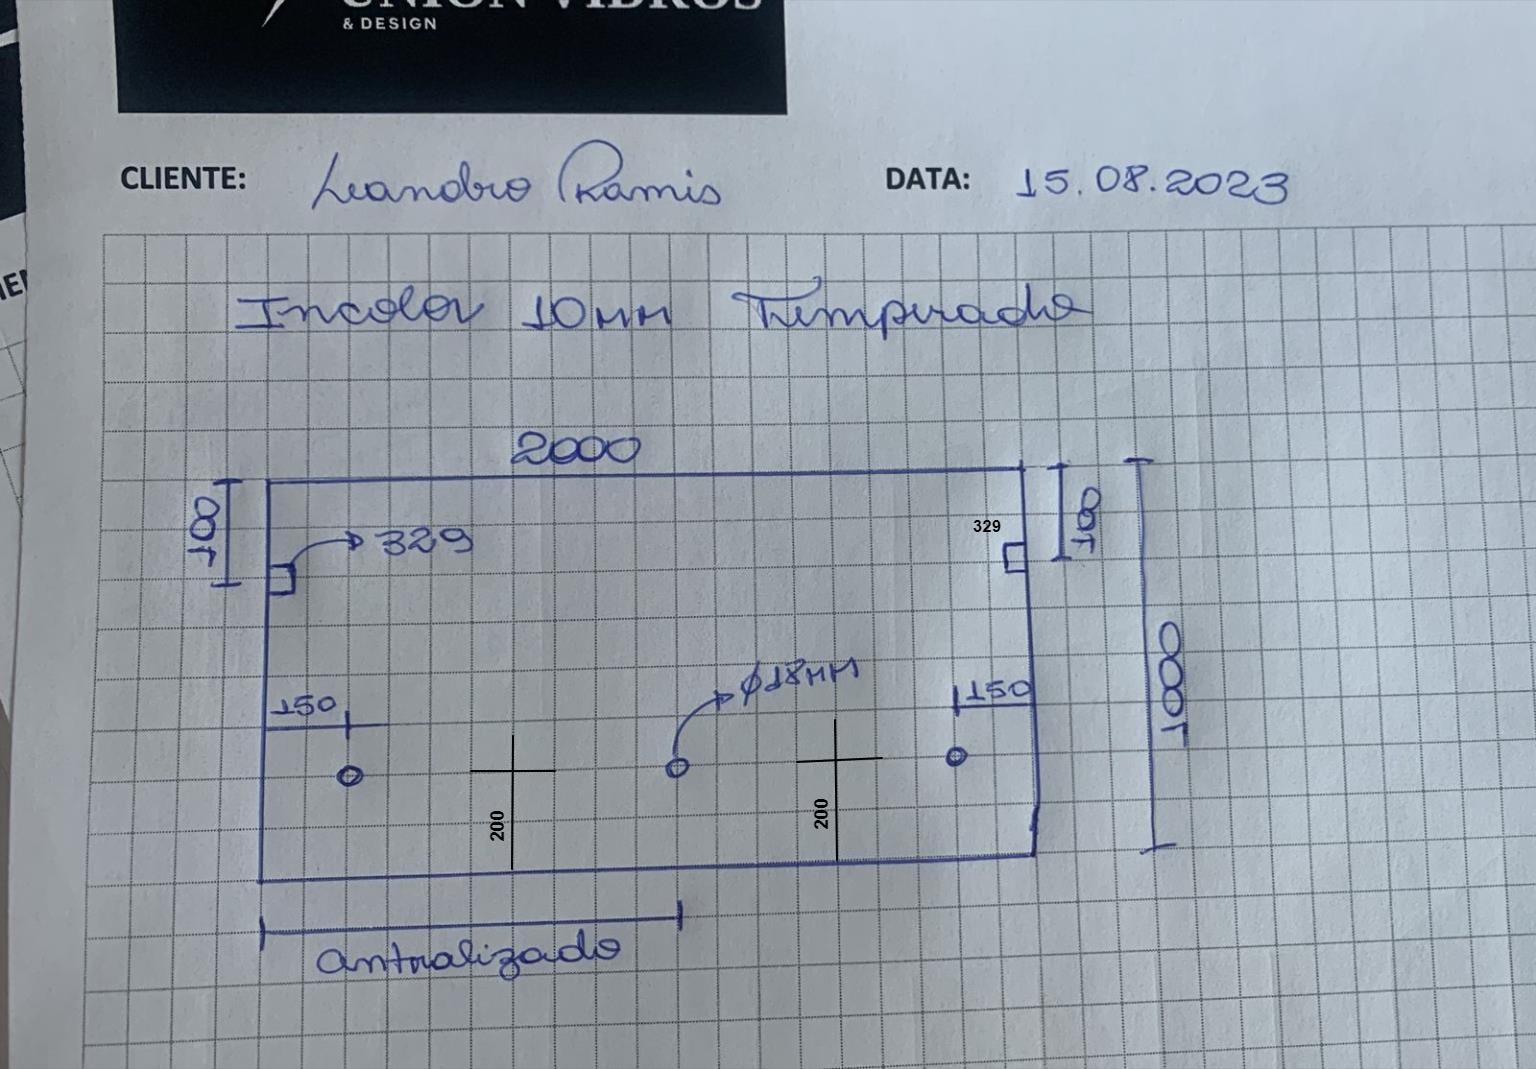 UNION VIDROS
& DESIGN
CLIENTE: Leandro Ramis DATA: 15.08.2023
Incolor 10MM Temperado
2000
100
329
329
100
1000
150
Ø18MM
150
200
200
Centralizado